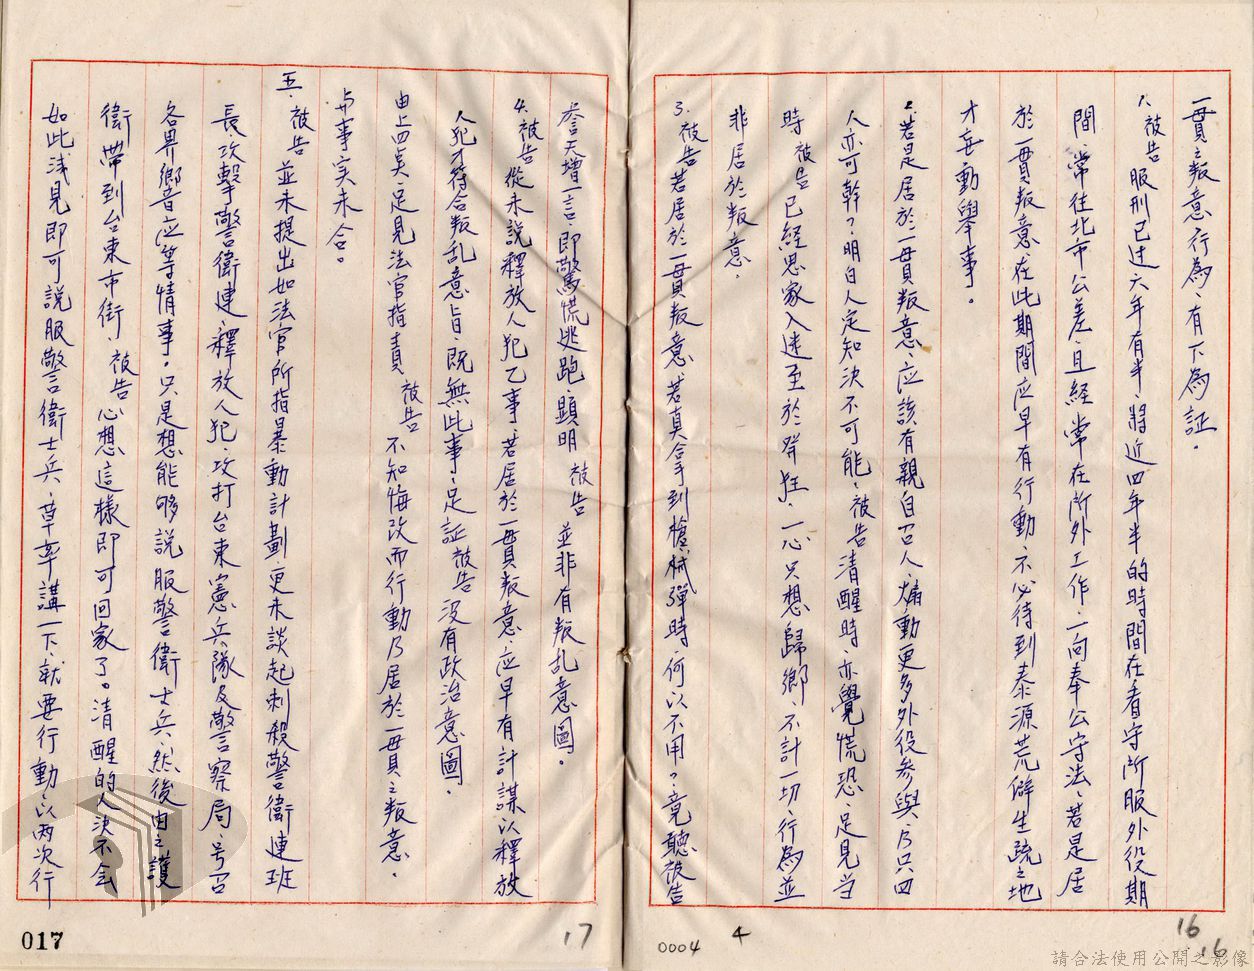 一貫之叛意行為、有下為証。
1.被告服刑已达六年有半、將近四年半的時間在看守所服外役期
間、常往北市公差、且経常在所外工作、一向奉公守法、若是居
於一貫叛意、在此期間应早有行動、不必待到泰源荒僻生疏之地
才妄動舉事。
2.若是居於一貫叛意、应該有親自召人、煽動更多外役参與、乃只四
人亦可幹？明白人定知決不可能、被告清醒時、亦覺慌恐、足見当
時被告已経思家入迷至於發狂、一心只想歸鄉、不計一切、行為並
非居於叛意。
3.被告若居於一貫叛意、若真合手到槍枝彈時、何以不用？竟聽被告
詹天增一言、即驚慌逃跑、顕明被告並非有叛乱意圖。
4.被告從未說釋放人犯乙事、若居於一貫叛意、应早有計謀、以釋放
人犯才符合叛乱意旨、既無此事、足証被告沒有政治意圖。
由上四点、足見法官指責被告不知悔改而行動乃居於一貫之叛意。
与事実未合。
五、被告並未提出如法官所指暴動計劃、更未談起刺殺警衛連班
長、攻擊警衛連、釋放人犯、攻打台東憲兵隊及警察局、号召
各界響应等情事。只是想能够説服警衛士兵、然後由之護
衛帶到台東市街、被告心想這樣即可回家了。清醒的人決不会
如此浅見即可説服警衛士兵、草率講一下就要行動、以两次行
017
17
0004
4
16
16
請合法使用公開之影像